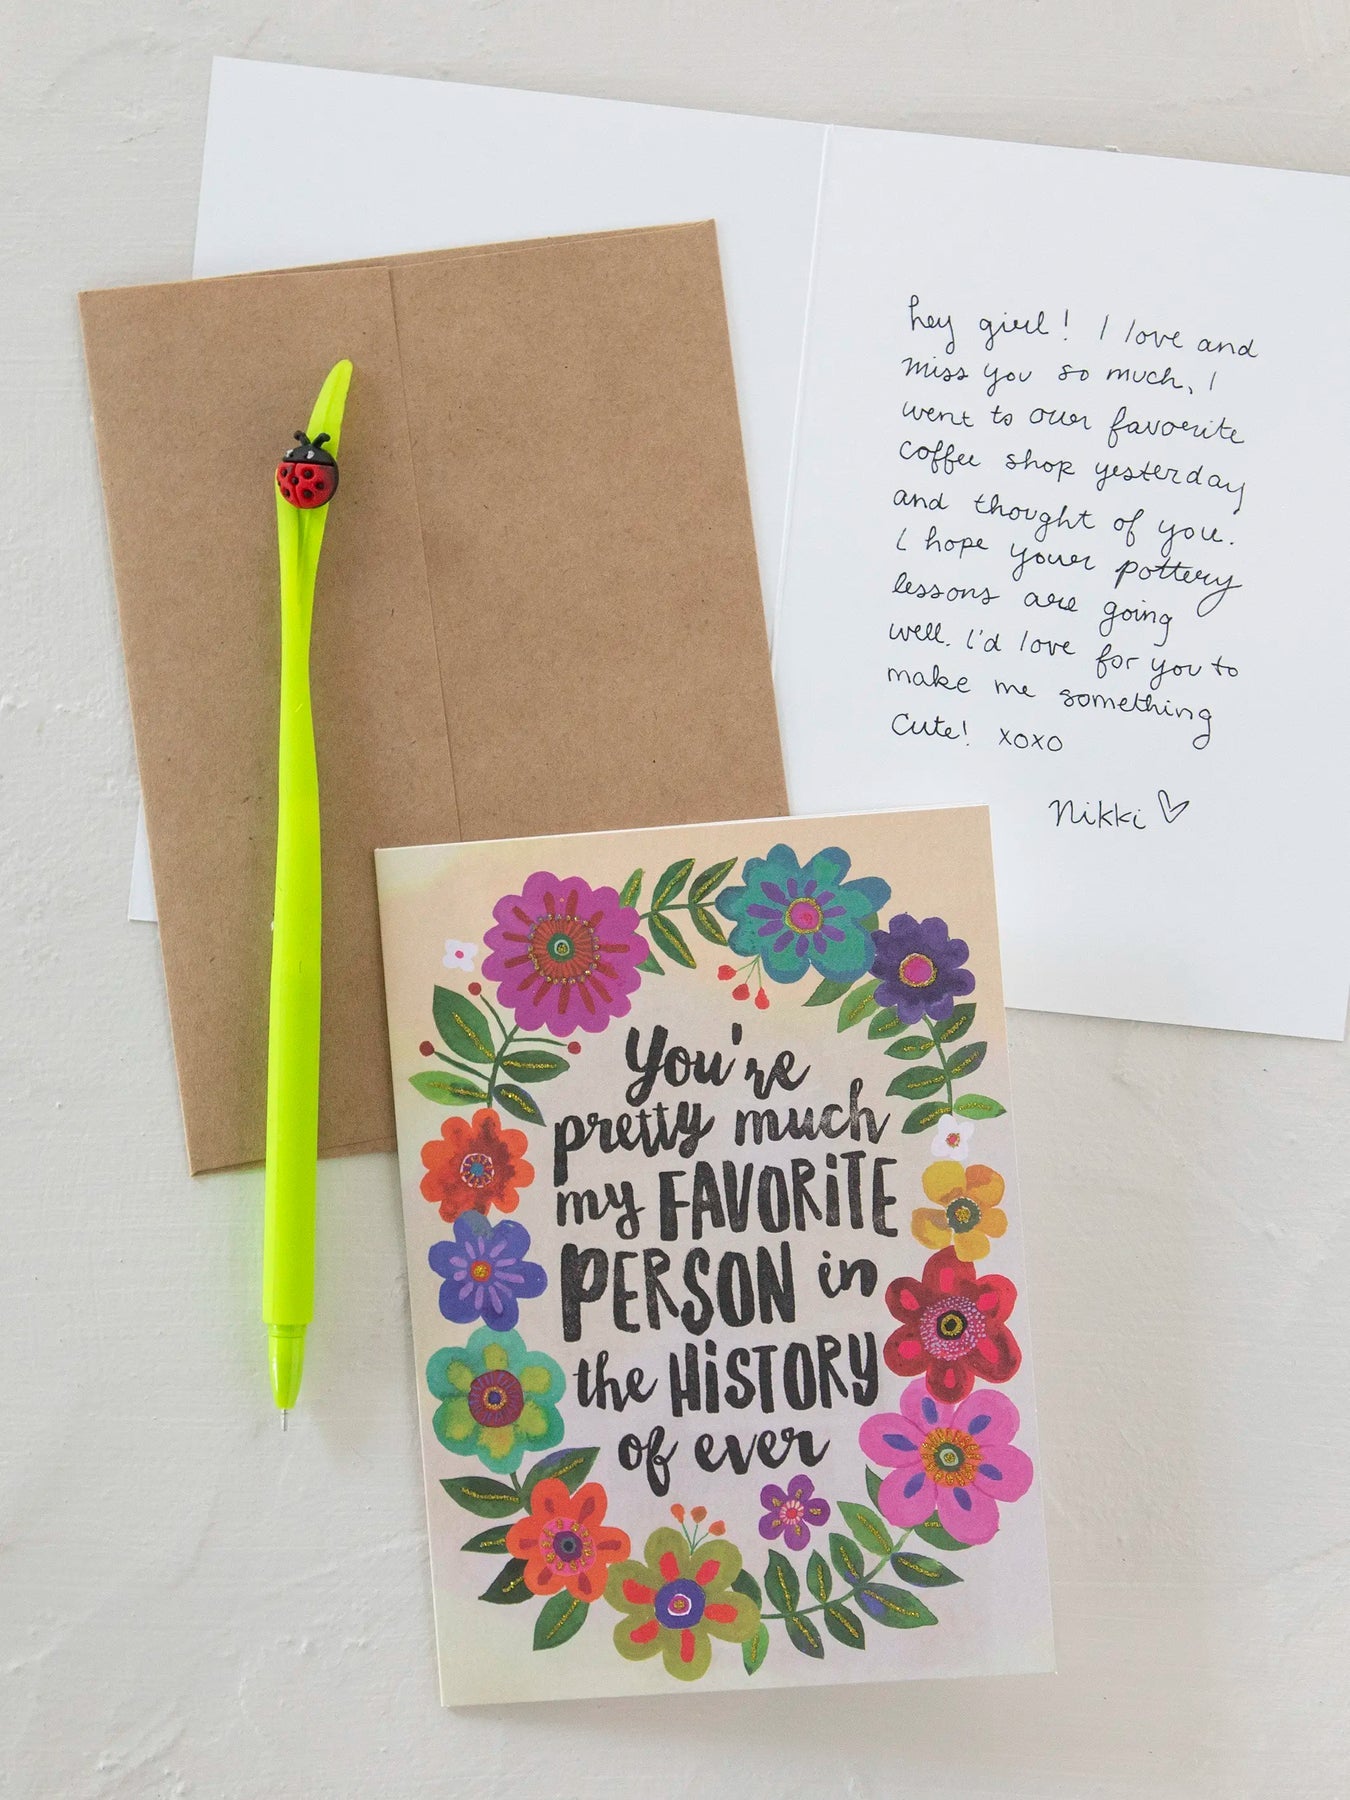 hey girl! I love and
miss you so much, I
went to our favorite
coffee shop yesterday
and thought of you.
I hope your pottery
lessons are going
well. I'd love for you to
make me something
cute! xoxo
Nikki ♡
You're
pretty much
my FAVORiTE
PERSON in
the HiSTORY
of ever